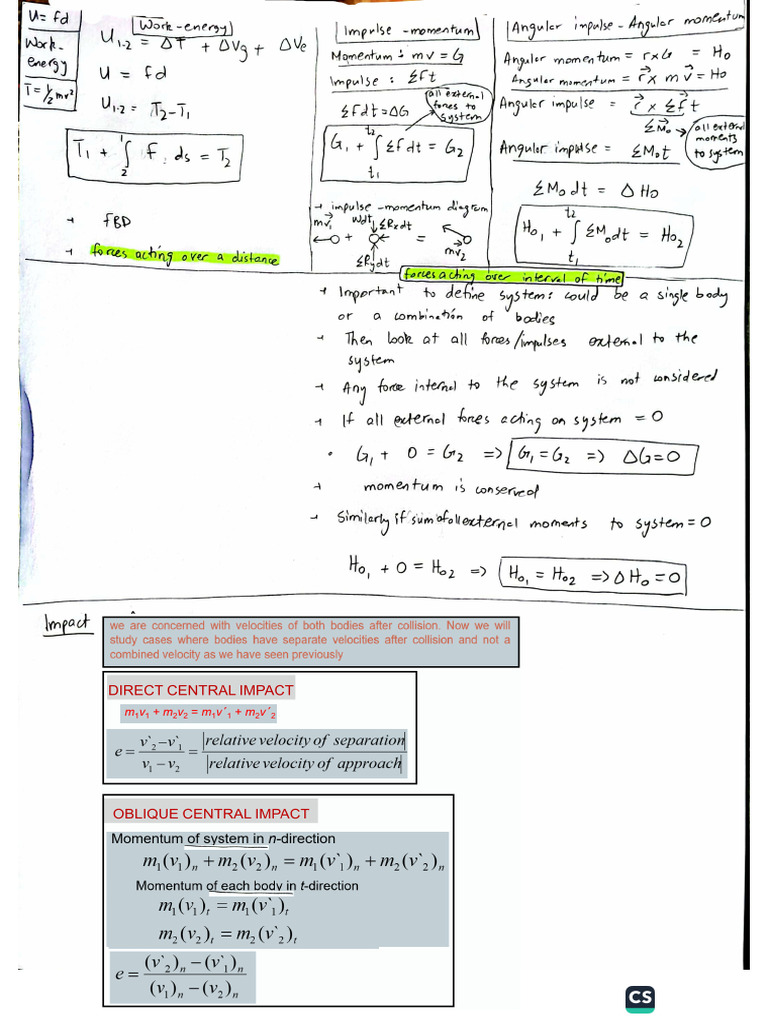 U = fd
Work-
energy
T = ½mv²
Work-energy
U₁₋₂ = ΔT + ΔVg + ΔVe
U = fd
U₁₋₂ = T₂ – T₁
T₁ + ∫₂¹ f. ds = T₂
→ FBD
→ forces acting over a distance
Impulse-momentum
Momentum : mv = G
Impulse : Σft
all external
forces to
system
Σfdt = ΔG
G₁ + ∫ₜ₁ᵗ² Σfdt = G₂
→ impulse-momentum diagram
mv₁ Wdt ΣRxdt
+ =
mv₂
ΣRydt
Angular impulse-Angular momentum
Angular momentum = r×G = Ho
Angular momentum = r⃗ × m v⃗ = Ho
Angular impulse = r⃗ × Σf⃗ t
ΣM⃗o → all external
moments
to system
Angular impulse = ΣMot
ΣMo dt = ΔHo
Ho₁ + ∫ₜ₁ᵗ² ΣMo dt = Ho₂
forces acting over interval of time
→ Important to define system: could be a single body
or a combination of bodies
→ Then look at all forces/impulses external to the
system
→ Any force internal to the system is not considered
→ If all external forces acting on system = 0
• G₁ + 0 = G₂ => G₁ = G₂ => ΔG = 0
→ momentum is conserved
→ Similarly if sum of all external moments to system = 0
Ho₁ + 0 = Ho₂ => Ho₁ = Ho₂ => ΔHo = 0
Impact
we are concerned with velocities of both bodies after collision. Now we will
study cases where bodies have separate velocities after collision and not a
combined velocity as we have seen previously
DIRECT CENTRAL IMPACT
m₁v₁ + m₂v₂ = m₁v´₁ + m₂v´₂
e = (v`₂ – v`₁) / (v₁ – v₂) = |relative velocity of separation| / |relative velocity of approach|
OBLIQUE CENTRAL IMPACT
Momentum of system in n-direction
m₁(v₁)ₙ + m₂(v₂)ₙ = m₁(v`₁)ₙ + m₂(v`₂)ₙ
Momentum of each body in t-direction
m₁(v₁)ₜ = m₁(v`₁)ₜ
m₂(v₂)ₜ = m₂(v`₂)ₜ
e = ((v`₂)ₙ – (v`₁)ₙ) / ((v₁)ₙ – (v₂)ₙ)
CS